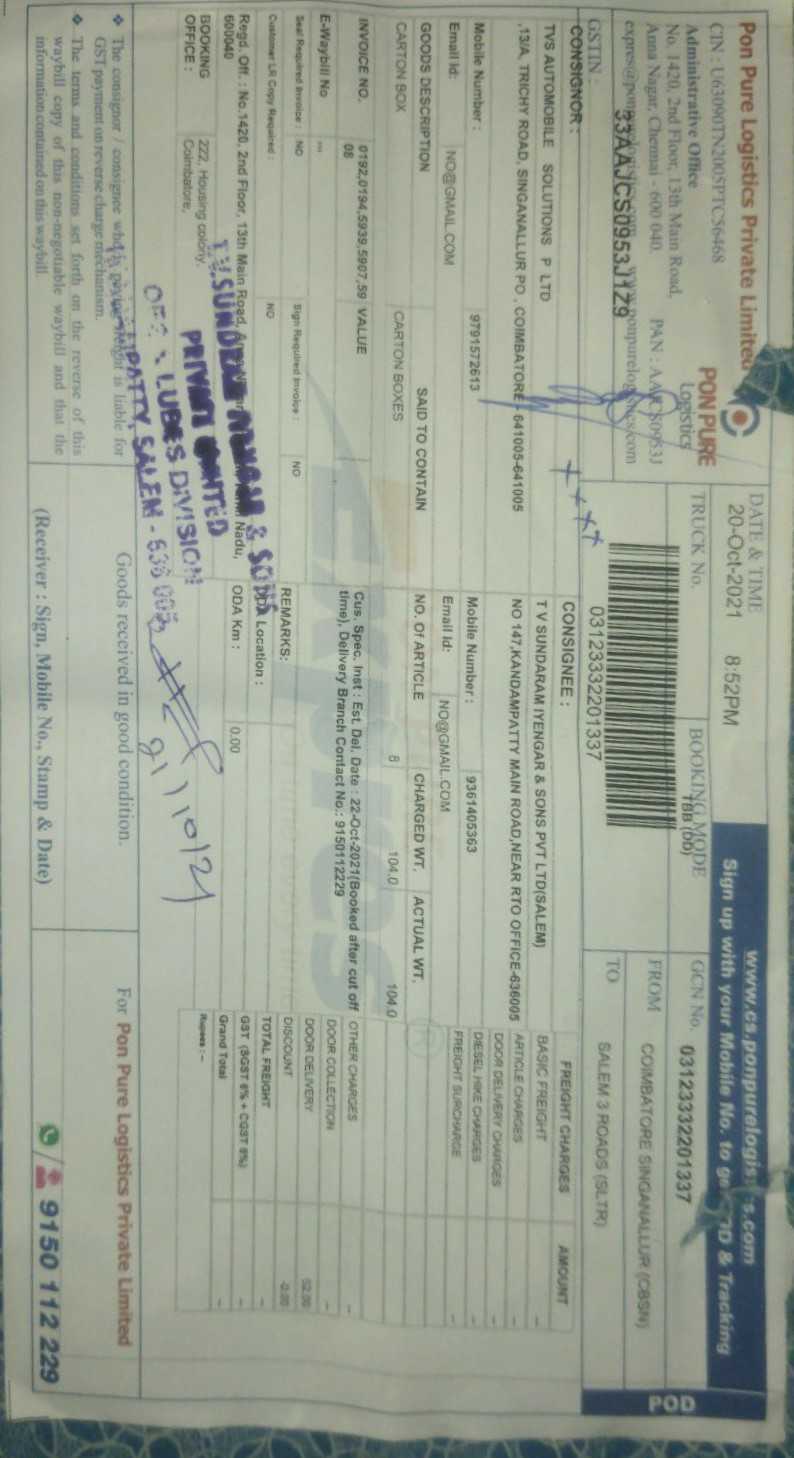 Pon Pure Logistics Private Limited
CIN : U63090TN2005PTC56468
Administrative Office
No. 1420, 2nd Floor, 13th Main Road,
Anna Nagar, Chennai - 600 040.
PAN :
GSTIN :
33AAJCS0953J1Z9
PON PURE
Logistics
DATE & TIME
20-Oct-2021 8:52PM
TRUCK No.
BOOKING MODE
TBB (DD)
03123332201337
www.cs.ponpurelogis s.com
Sign up with your Mobile No. to ge & Tracking
GCN No. 03123332201337
FROM COIMBATORE SINGANALLUR (CBSN)
TO SALEM 3 ROADS (SLTR)
POD
CONSIGNOR :
TVS AUTOMOBILE SOLUTIONS P LTD
,13/A, TRICHY ROAD, SINGANALLUR PO , COIMBATORE- 641005-641005
Mobile Number : 9791572613
Email Id: NO@GMAIL.COM
CONSIGNEE :
T V SUNDARAM IYENGAR & SONS PVT LTD(SALEM)
NO 147,KANDAMPATTY MAIN ROAD,NEAR RTO OFFICE-636005
Mobile Number : 9361405363
Email Id: NO@GMAIL.COM
GOODS DESCRIPTION SAID TO CONTAIN NO. Of ARTICLE CHARGED WT. ACTUAL WT.
CARTON BOX CARTON BOXES 8 104.0 104.0
INVOICE NO. 0192,0194,5939,5907,59 VALUE
08
E-Waybill No ---
Seal Required Invoice : NO Sign Required Invoice : NO
Customer LR Copy Required : NO
Cus. Spec. Inst : Est. Del. Date : 22-Oct-2021(Booked after cut off
time), Delivery Branch Contact No.: 9150112229
REMARKS:
Location :
ODA Km : 0.00
Regd. Off. : No.1420, 2nd Floor, 13th Main Road, Nadu,
600040
BOOKING
OFFICE :
222, Housing colony,
Coimbatore,
& SONS
PRIVATE LIMITED
LUBES DIVISION
SALEM - 636 005
21/10/21
FREIGHT CHARGES AMOUNT
BASIC FREIGHT -
ARTICLE CHARGES -
DOOR DELIVERY CHARGES -
DIESEL HIKE CHARGES -
FREIGHT SURCHARGE -
OTHER CHARGES -
DOOR COLLECTION -
DOOR DELIVERY 52.00
DISCOUNT -0.00
TOTAL FREIGHT -
GST (SGST 6% + CGST 6%) -
Grand Total -
Rupees : --
The consignor / consignee who is paying freight is liable for
GST payment on reverse charge mechanism.
The terms and conditions set forth on the reverse of this
waybill copy of this non-negotiable waybill and that the
information contained on this waybill.
Goods received in good condition.
(Receiver : Sign, Mobile No., Stamp & Date)
For Pon Pure Logistics Private Limited
9150 112 229